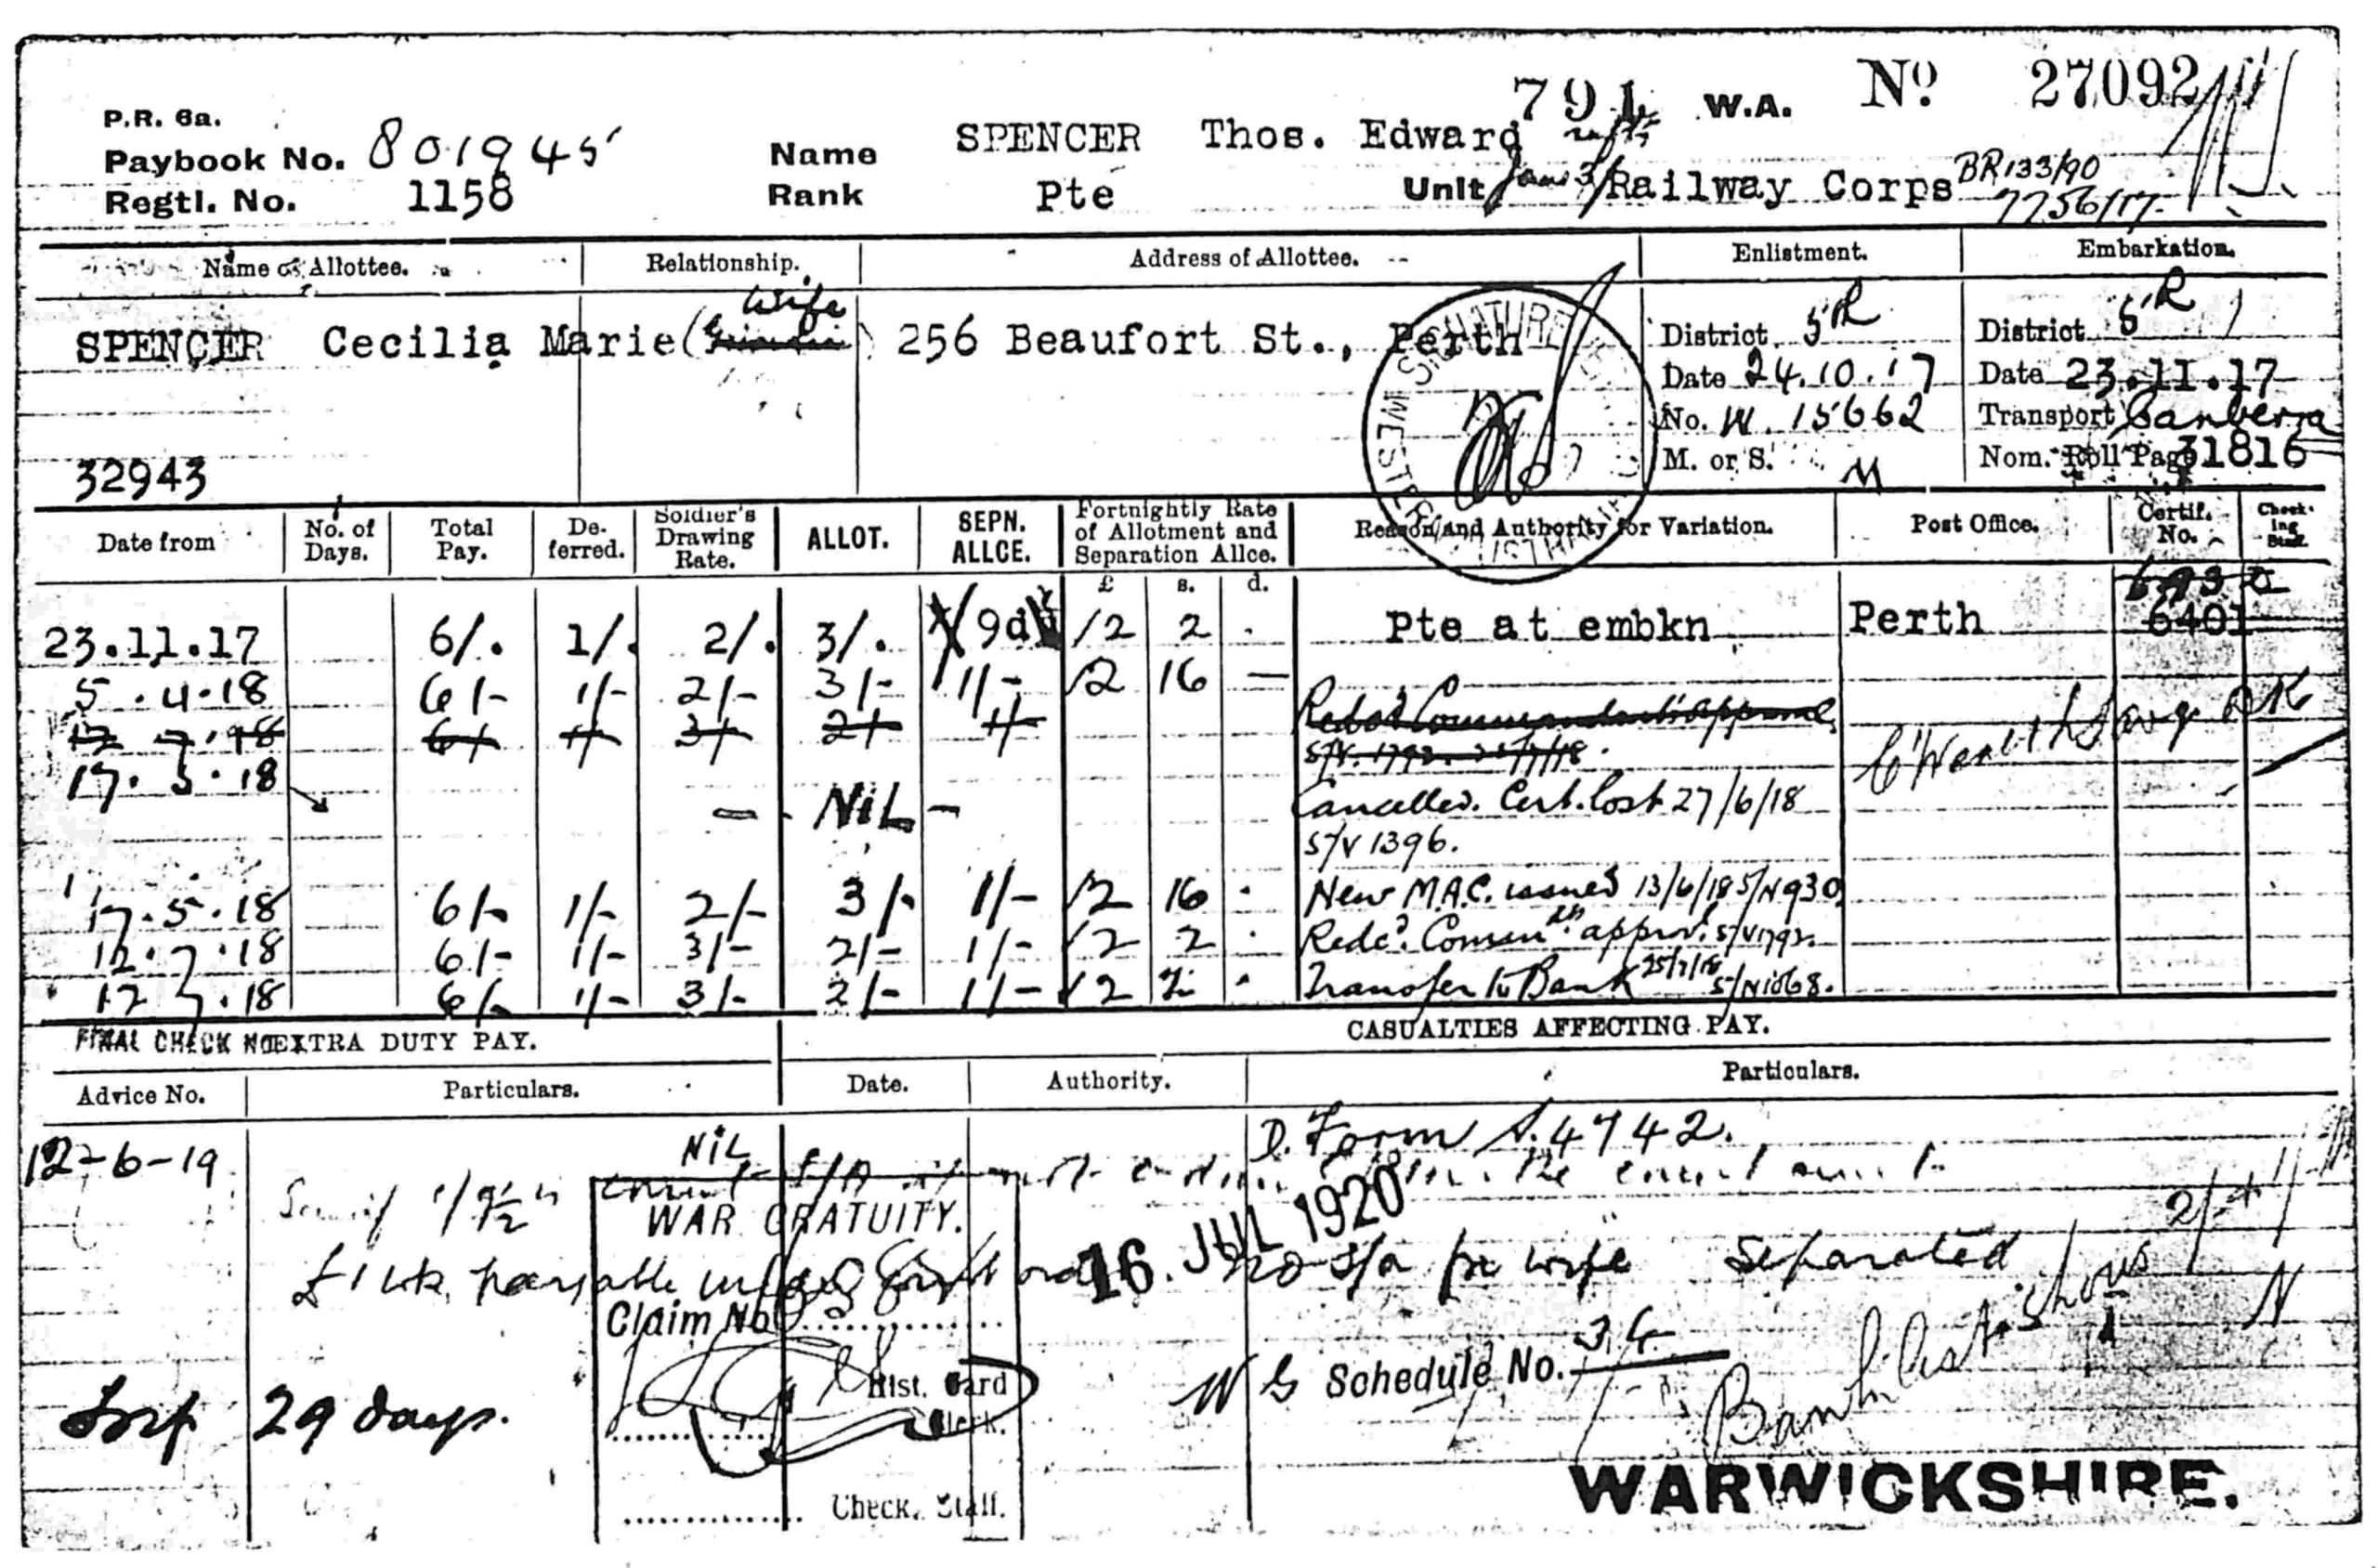 791 W.A. Nº 27092
P.R. 6a.
Paybook No. 801945 Name SPENCER Thos. Edward
Regtl. No. 1158 Rank Pte Unit Railway Corps BR133/90
7756/17
Name of Allottee. Relationship. Address of Allottee. Enlistment. Embarkation.
wife
SPENCER Cecilia Marie 256 Beaufort St., Perth
District 5R District 5R
Date 24.10.17 Date 23.11.17
No. W. 15662 Transport Canberra
32943 M. or S. M Nom. Roll Page 31816
WESTMINSTER SIGNATURE
Date from No. of Days. Total Pay. Deferred. Soldier's Drawing Rate. ALLOT. SEPN. ALLCE. Fortnightly Rate of Allotment and Separation Allce. Reason and Authority for Variation. Post Office. Certif. No. Checking Staff.
£ s. d.
23.11.17 6/. 1/. 2/. 3/. 9d 2 2 . Pte at embkn Perth 6401
5.4.18 6/- 1/- 2/- 3/- 1/- 2 16 —
12 7.18 6/ 1/ 3/ 2/ 1/ Red'd Commandant's approval
S/V. 1792. 25/7/18.
17.5.18 — NiL — Cancelled. Cert. lost 27/6/18
S/V 1396.
17.5.18 6/- 1/- 2/- 3/- 1/- 2 16 . New M.A.C. issued 13/6/18 S/N930
12.7.18 6/- 1/- 3/- 2/- 1/- 2 2 . Redc'd. Commdn. approv'l S/V1792.
12 7.18 6/- 1/- 3/- 2/- 1/- 2 2 . Transfer to Bank 25/7/18 S/N1068.
C'Wealth Savgs BK
FINAL CHECK NO EXTRA DUTY PAY. CASUALTIES AFFECTING PAY.
Advice No. Particulars. Date. Authority. Particulars.
D. Form A.4742.
12-6-19 NiL
WAR GRATUITY.
16 JUL 1920
£1 wk. payable under no S/A for wife Separated
Claim No.
W G Schedule No. 34
Hist. Card Clerk.
29 days.
Check. Staff.
WARWICKSHIRE.